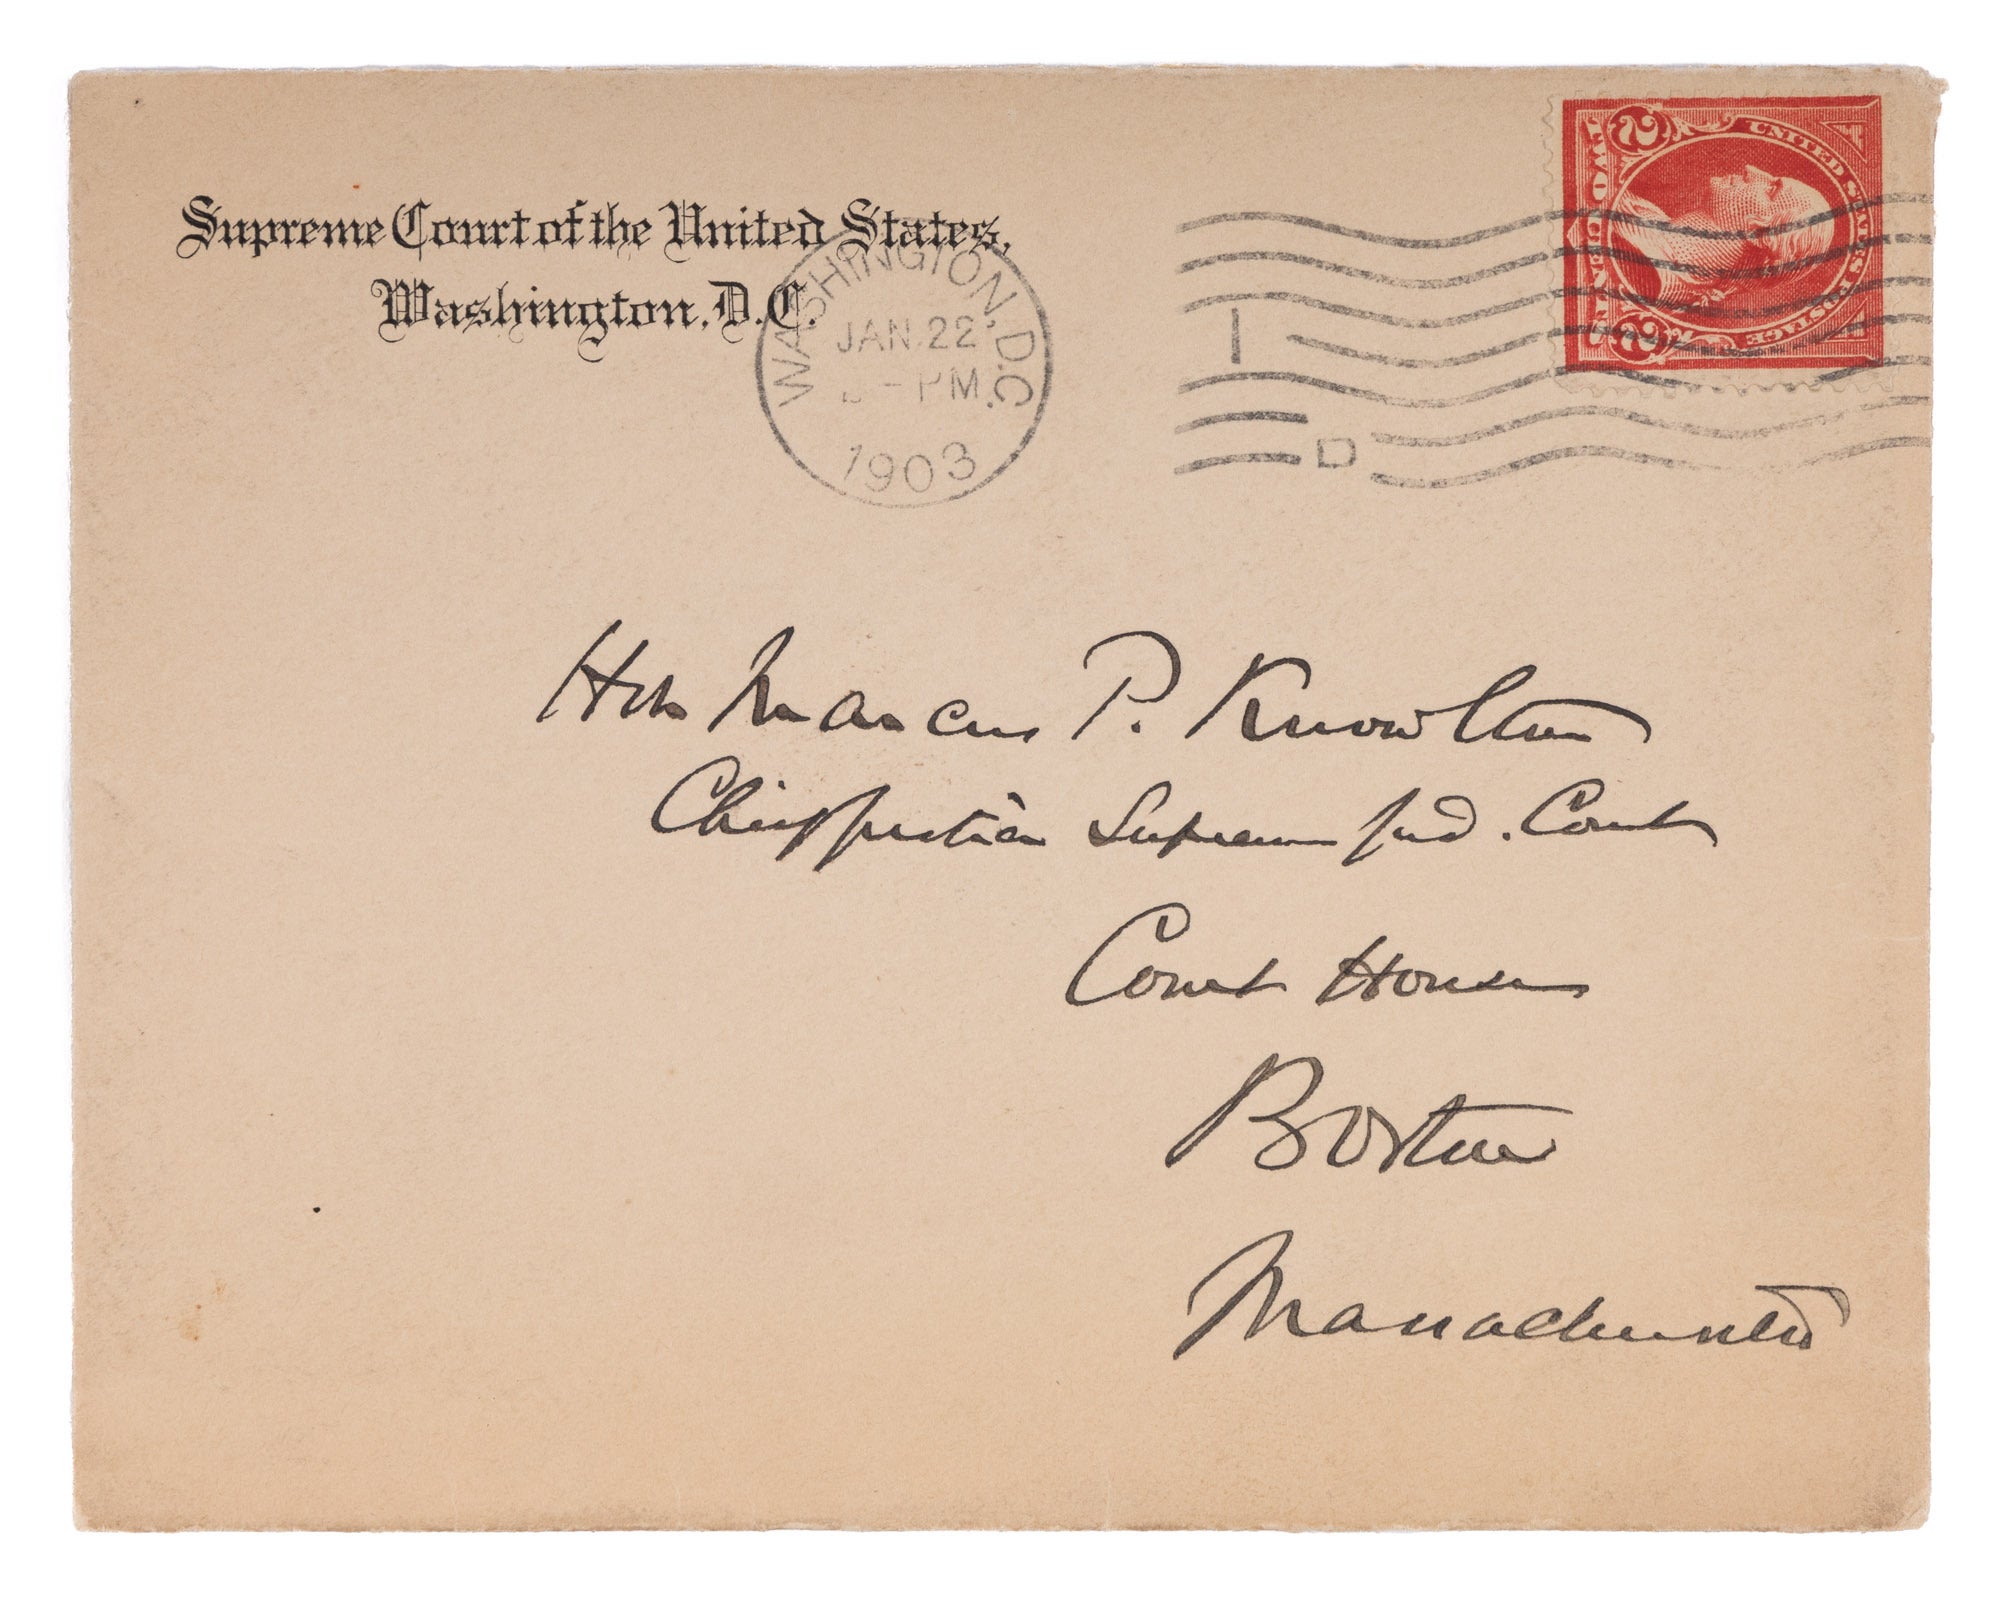 Supreme Court of the United States,
Washington, D.C.
WASHINGTON, D.C.
JAN. 22
- PM
1903
1
D
UNITED STATES POSTAGE
TWO CENTS
2 2
Hon Marcus P. Knowlton
Chief Justice Supreme Jud. Court
Court House
Boston
Massachusetts